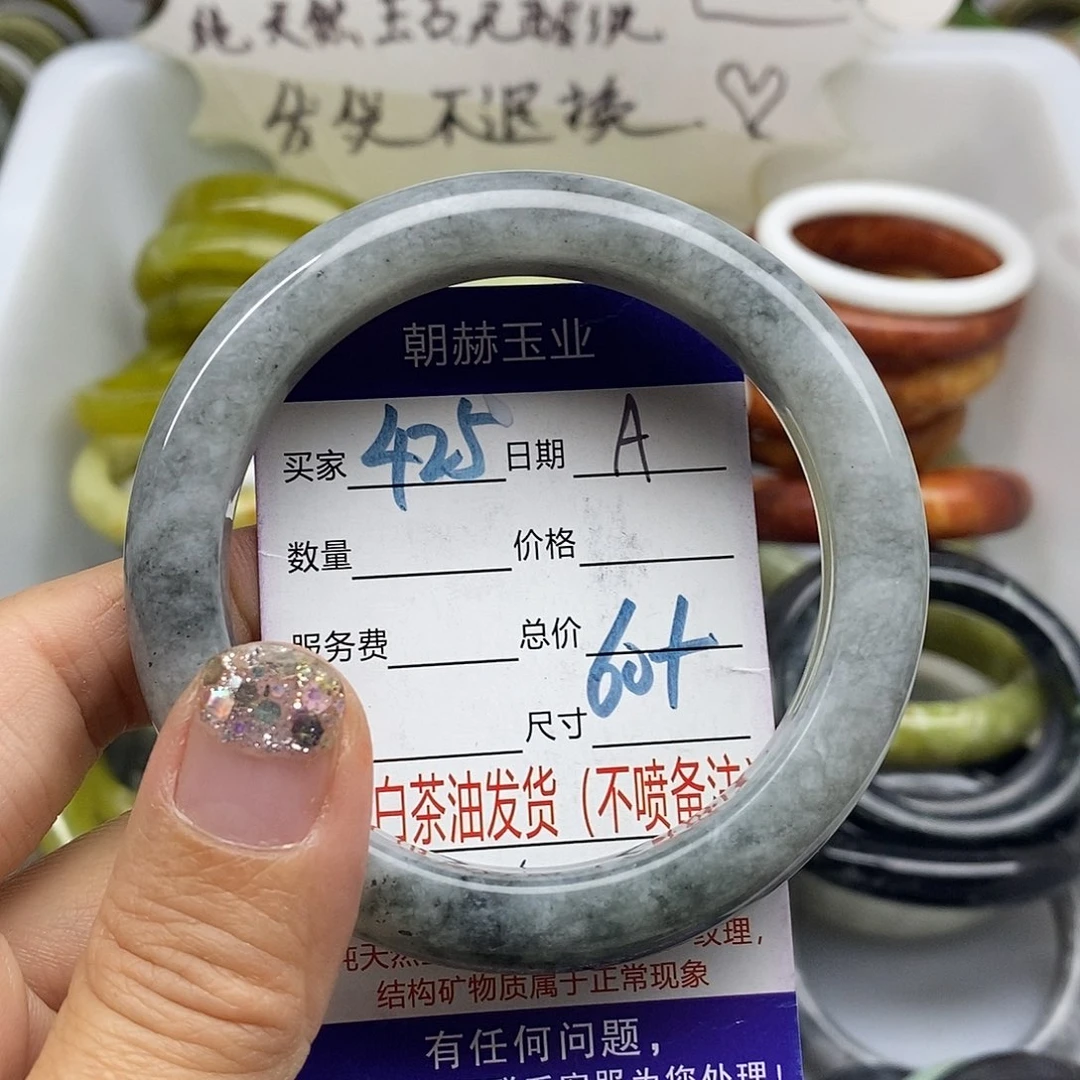 纯天然玉石无酸洗
售出不退换
朝赫玉业
买家 425 日期 A
数量 价格
服务费 总价
60+
尺寸
白茶油发货（不喷备注
纯天然 纹理，
结构矿物质属于正常现象
有任何问题，
客服为您处理！